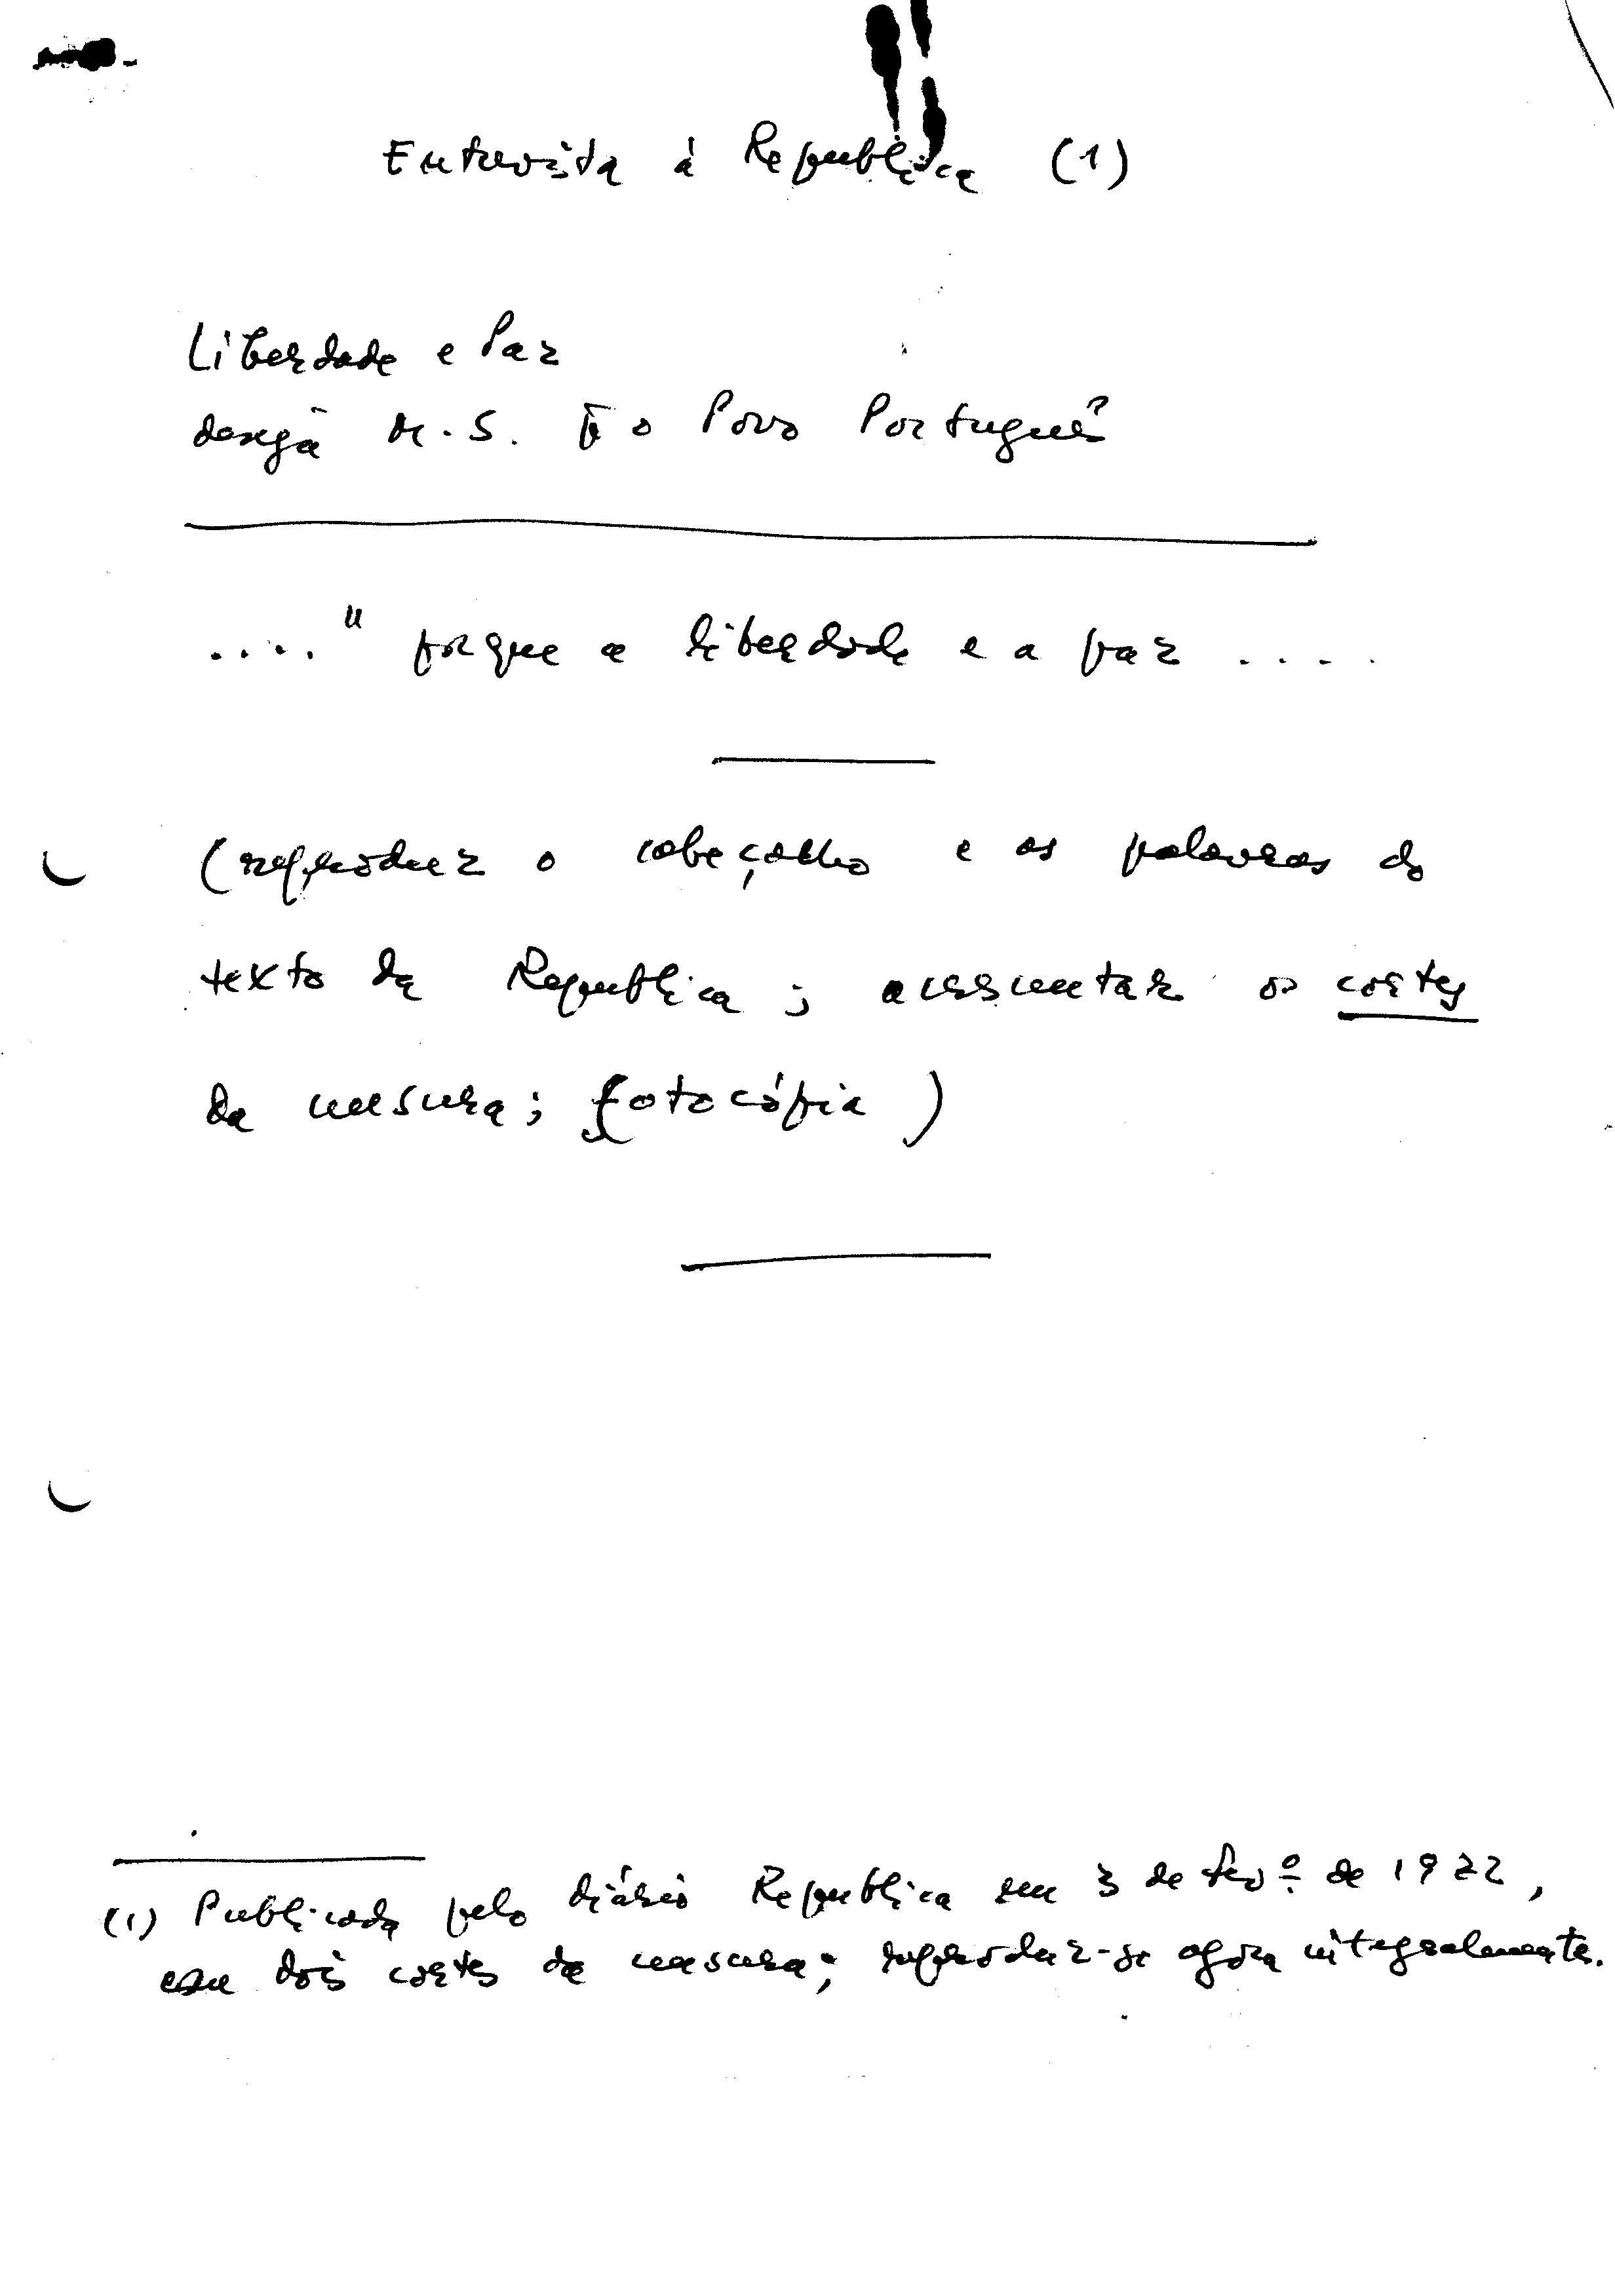 Entrevista á Republica (1)
Liberdade e Paz
deseja M. S. o Povo Português
...." porque a liberdade e a paz ....
(reproduz o cabeçalho e as palavras do
texto da Republica; acrescentar os cortes
da censura; fotocópia)
(1) Publicada pelo diário Republica em 3 de Fevº de 1972,
com dois cortes da censura; reproduz-se agora integralmente.